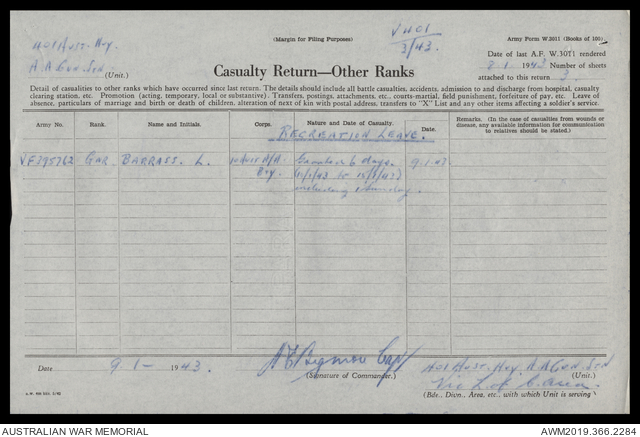 (Margin for Filing Purposes)
V401
3/43.
Army Form W.3011 (Books of 100)
401 Aust. Hvy.
A A Gun Stn (Unit.)
Date of last A.F. W.3011 rendered
8-1- 1943 Number of sheets
attached to this return 3.
Casualty Return—Other Ranks
Detail of casualties to other ranks which have occurred since last return. The details should include all battle casualties, accidents, admission to and discharge from hospital, casualty
clearing station, etc. Promotion (acting, temporary, local or substantive). Transfers, postings, attachments, etc., courts-martial, field punishment, forfeiture of pay, etc. Leave of
absence, particulars of marriage and birth or death of children, alteration of next of kin with postal address, transfers to "X" List and any other items affecting a soldier's service.
Army No. Rank. Name and Initials. Corps. Nature and Date of Casualty. Date. Remarks. (In the case of casualties from wounds or
disease, any available information for communication
to relatives should be stated.)
RECREATION LEAVE.
Gnr BARRASS. L. Aust A/A Granted 6 days. 9-1-43
Bty. including 1 Sunday.
Date 9-1- 1943.
(Signature of Commander.)
401 Aust. Hvy. A.A Gun Stn
(Unit.)
Vic L of C. Area.
(Bde., Divn., Area, etc., with which Unit is serving)
AUSTRALIAN WAR MEMORIAL
AWM2019.366.2284